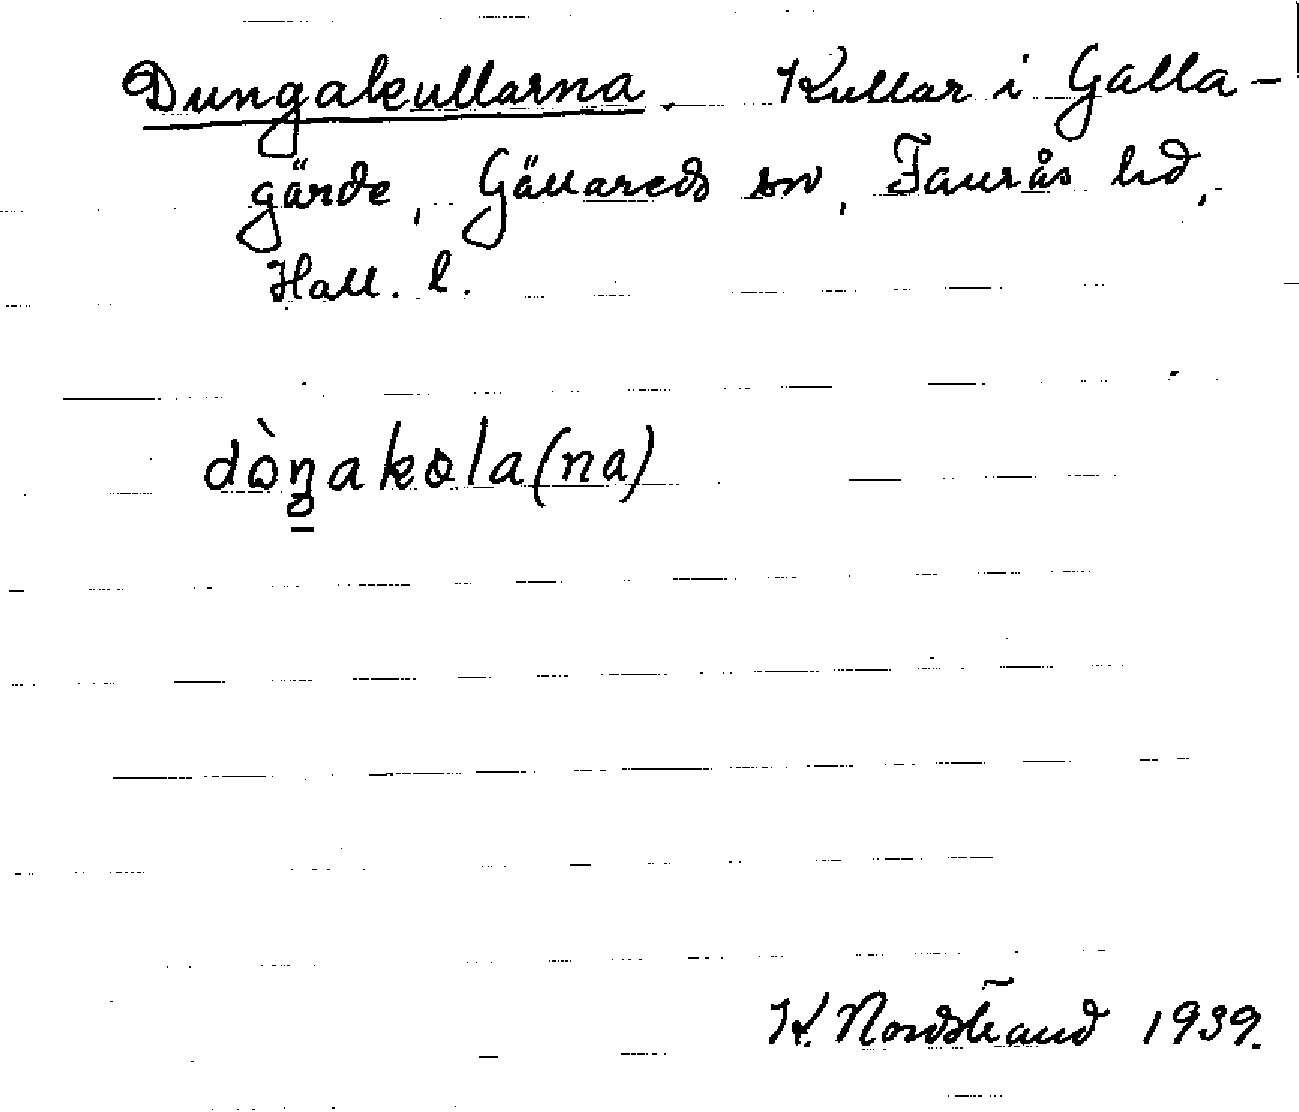 Dungakullarna. Kullar i Galla-
gärde, Gällareds sn, Faurås hd,
Hall. l.
dòŋakola(na)
K. Nordstrand 1939.